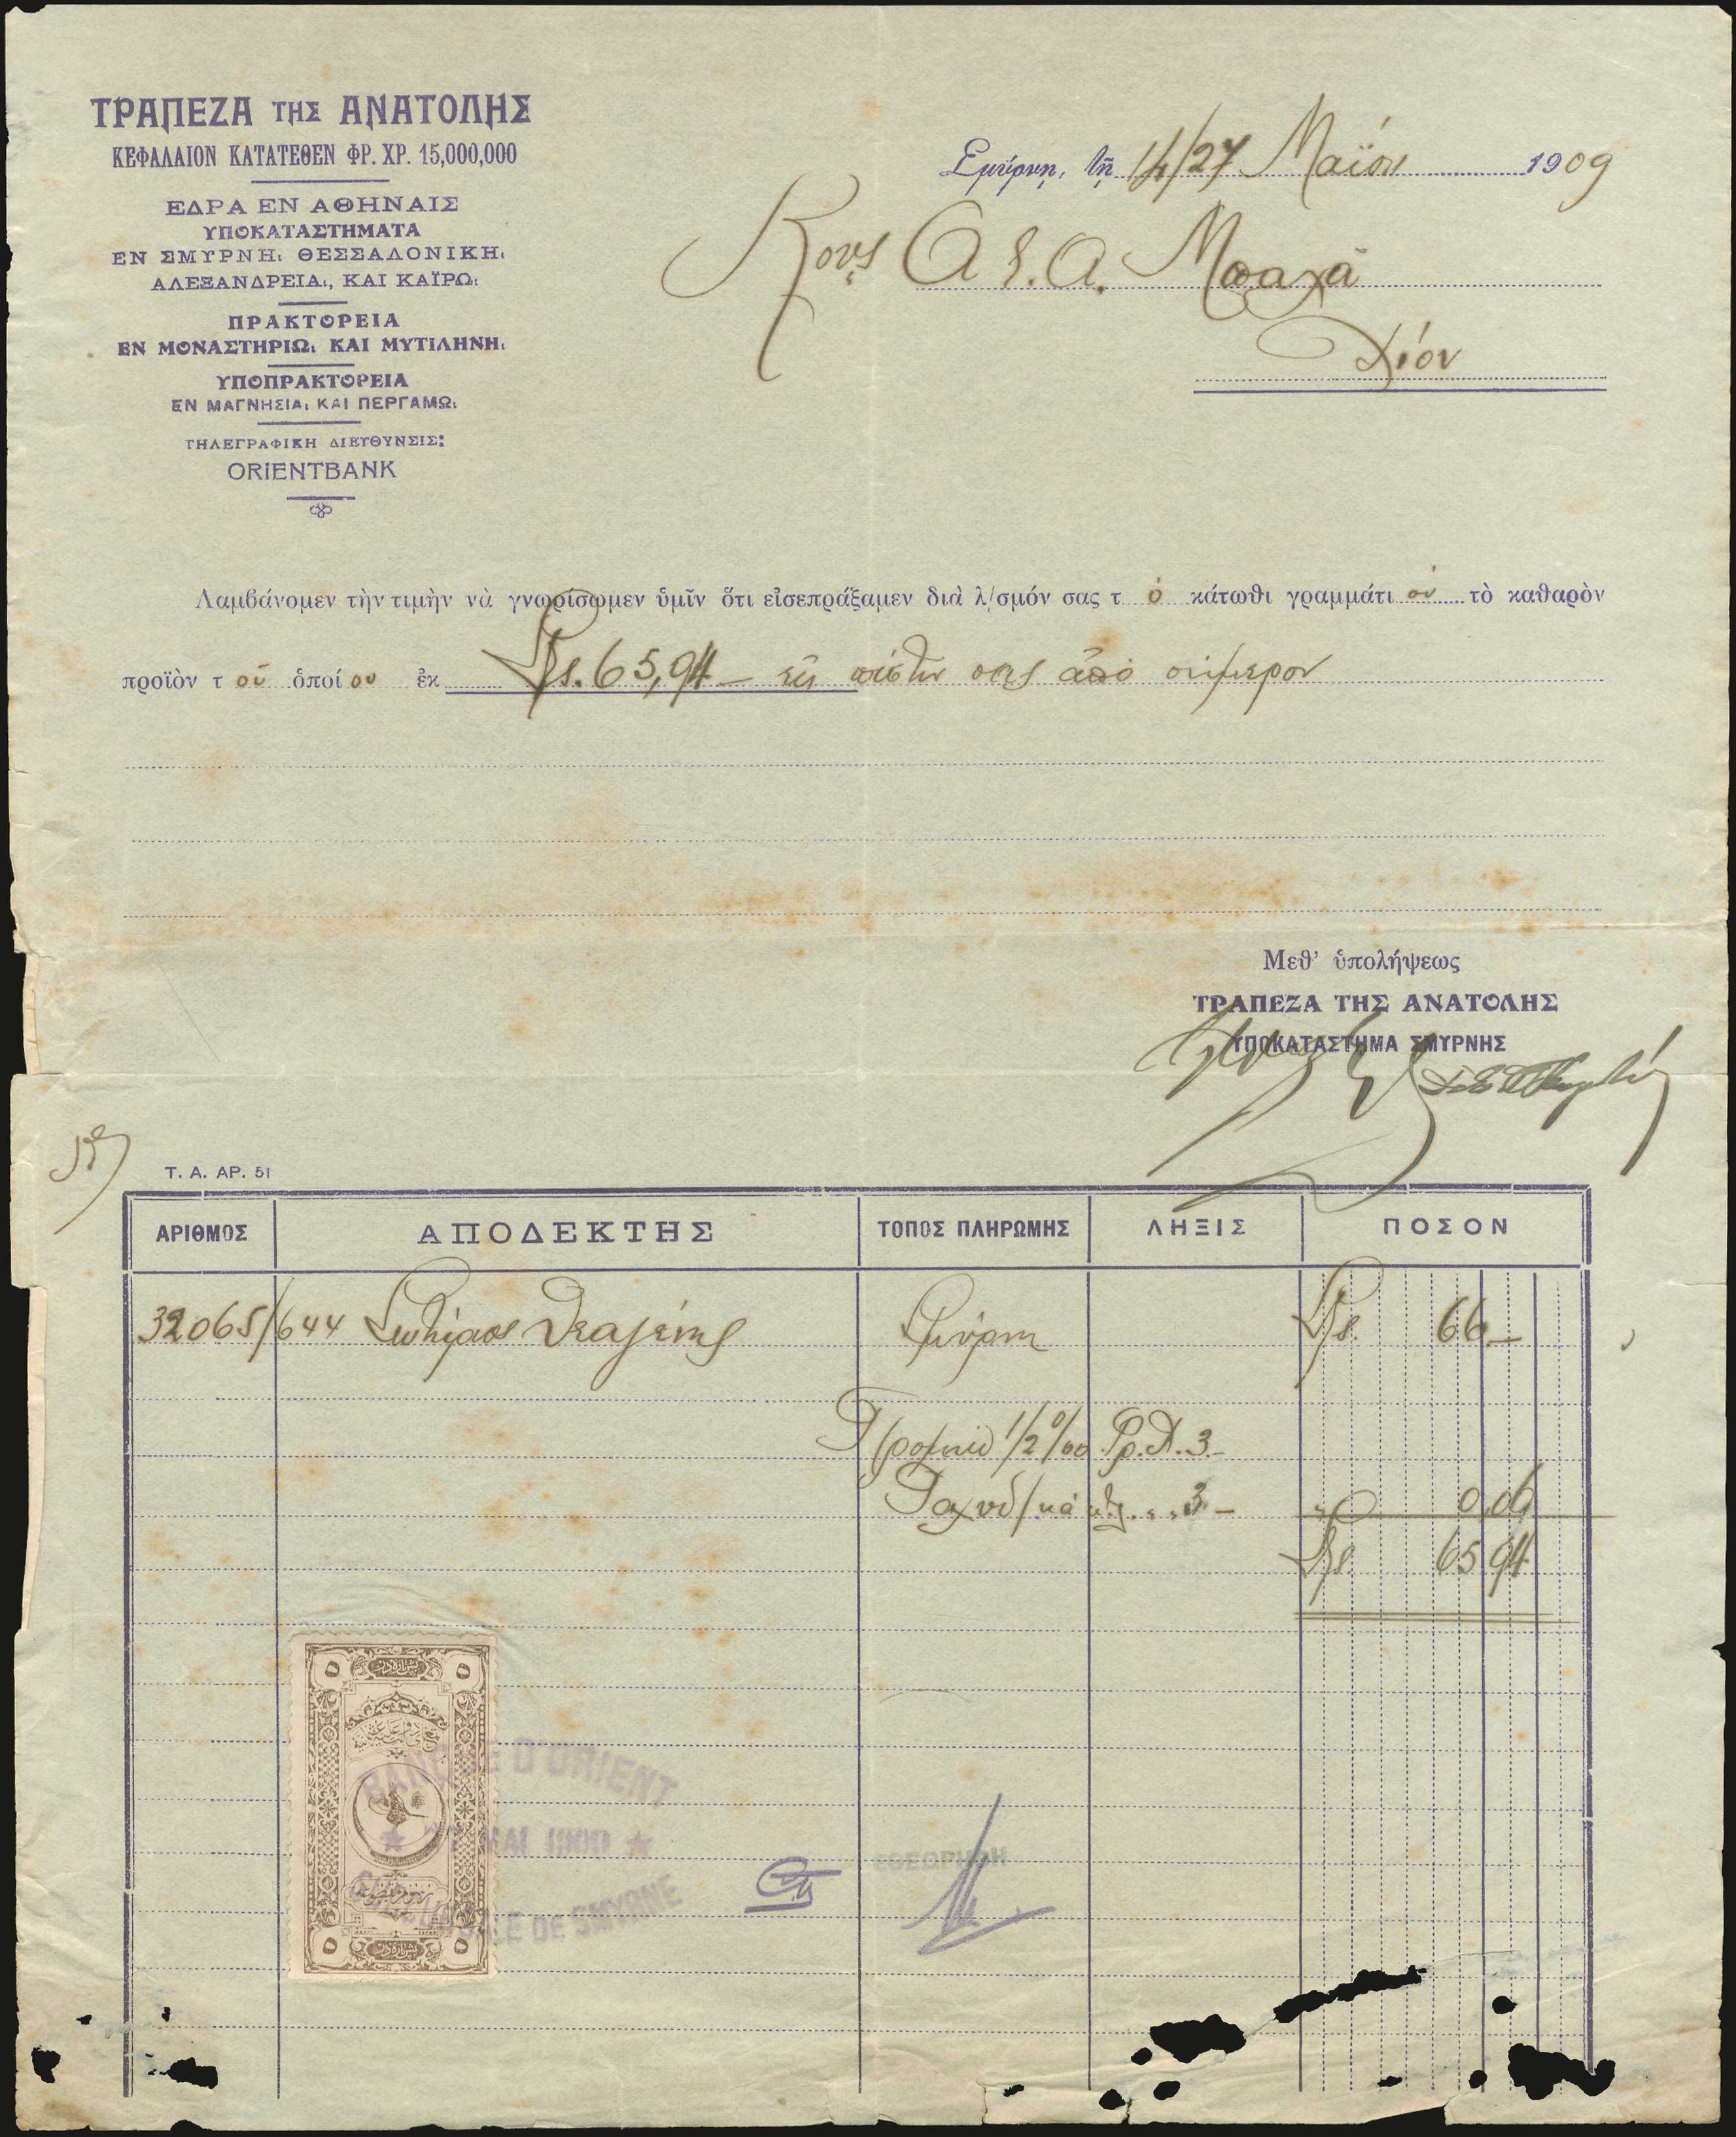 ΤΡΑΠΕΖΑ ΤΗΣ ΑΝΑΤΟΛΗΣ
ΚΕΦΑΛΑΙΟΝ ΚΑΤΑΤΕΘΕΝ ΦΡ. ΧΡ. 15,000,000
ΕΔΡΑ ΕΝ ΑΘΗΝΑΙΣ
ΥΠΟΚΑΤΑΣΤΗΜΑΤΑ
ΕΝ ΣΜΥΡΝΗι ΘΕΣΣΑΛΟΝΙΚΗι
ΑΛΕΞΑΝΔΡΕΙΑι, ΚΑΙ ΚΑΪΡΩι
ΠΡΑΚΤΟΡΕΙΑ
ΕΝ ΜΟΝΑΣΤΗΡΙΩι ΚΑΙ ΜΥΤΙΛΗΝΗι
ΥΠΟΠΡΑΚΤΟΡΕΙΑ
ΕΝ ΜΑΓΝΗΣΙΑι ΚΑΙ ΠΕΡΓΑΜΩι
ΤΗΛΕΓΡΑΦΙΚΗ ΔΙΕΥΘΥΝΣΙΣ:
ORIENTBANK
Σμύρνῃ, τῇ 14/27 Μαΐου 1909
Κους Α & Α. Μπαχᾶ
Χίον
Λαμβάνομεν τὴν τιμὴν νὰ γνωρίσωμεν ὑμῖν ὅτι εἰσεπράξαμεν διὰ λ/σμόν σας τ ὸ κάτωθι γραμμάτι ον τὸ καθαρὸν
προϊὸν τ οῦ ὁποί ου ἐκ Ltqs. 65,94 – εἰς πίστιν σας ἀπὸ σήμερον
Μεθ' ὑπολήψεως
ΤΡΑΠΕΖΑ ΤΗΣ ΑΝΑΤΟΛΗΣ
ΥΠΟΚΑΤΑΣΤΗΜΑ ΣΜΥΡΝΗΣ
Τ. Α. ΑΡ. 51
ΑΡΙΘΜΟΣ ΑΠΟΔΕΚΤΗΣ ΤΟΠΟΣ ΠΛΗΡΩΜΗΣ ΛΗΞΙΣ ΠΟΣΟΝ
32065/644 Θεαγένης Σμύρνη 66 –
1/2 ‰ Γρ. Δ. 3 –
Ταχυδ/κὰ κτλ. „ „ 3 – 0,06
65 94
٥ ٥
BANQUE D'ORIENT
27 MAI 1909
SUCCURSALE DE SMYRNE
ΕΘΕΩΡΗΘΗ
٥ ٥